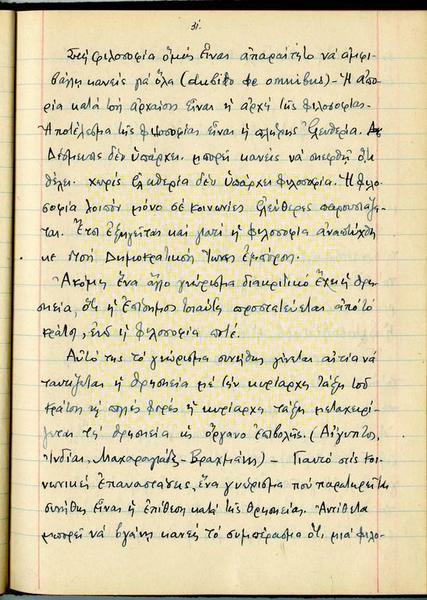 31.
Στή φιλοσοφία ὅμως εἶναι ἀπαραίτητο νά ἀμφι-
βάλῃ κανείς γιά ὅλα (dubito de omnibus) - Ἡ ἀπο-
ρία κατά τούς ἀρχαίους εἶναι ἡ ἀρχή τῆς φιλοσοφίας.
Ἀποτέλεσμα τῆς φιλοσοφίας εἶναι ἡ πλήρης Ἐλευθερία.
Δέσμευσις δέν ὑπάρχει. μπορεῖ κανείς νά σκεφθῇ ὅτι
θέλει. χωρίς ἐλευθερία δέν ὑπάρχει φιλοσοφία. Ἡ φιλο-
σοφία λοιπόν μόνο σέ κοινωνίες ἐλεύθερες παρουσιάζε-
ται. Ἔτσι ἐξηγεῖται καί γιατί ἡ φιλοσοφία ἀνεπτύχθη
Δημοκρατικούς Ἴωνες ἐμπόρους.
Ἀκόμη ἕνα ἄλλο γνώρισμα διακριτικό ἔχει ἡ θρη-
σκεία, ὅτι ἡ ἐπίσημος τοιαύτη προστατεύεται ἀπό τό
κράτος, ἐνῶ ἡ φιλοσοφία ποτέ.
Αὐτό της τό γνώρισμα συνήθως γίνεται αἰτία νά
ταυτίζεται ἡ θρησκεία μέ τήν κυρίαρχη τάξη τοῦ
κράτους κι πολλές φορές ἡ κυρίαρχη τάξη μεταχειρί-
ζεται τή θρησκεία ὡς ὄργανο ἐπιβολῆς. (Αἴγυπτος,
Ἰνδίαι, Μαχαραγιάδες - Βραχμᾶνες) - Γιαυτό στίς κοι-
νωνικές ἐπαναστάσεις, ἕνα γνώρισμα πού παρατηρεῖται
συνήθως εἶναι ἡ ἐπίθεση κατά τῆς θρησκείας. Ἀντίθετα
μπορεῖ νά βγάνῃ κανείς τό συμπέρασμα ὅτι, μιά φιλο-